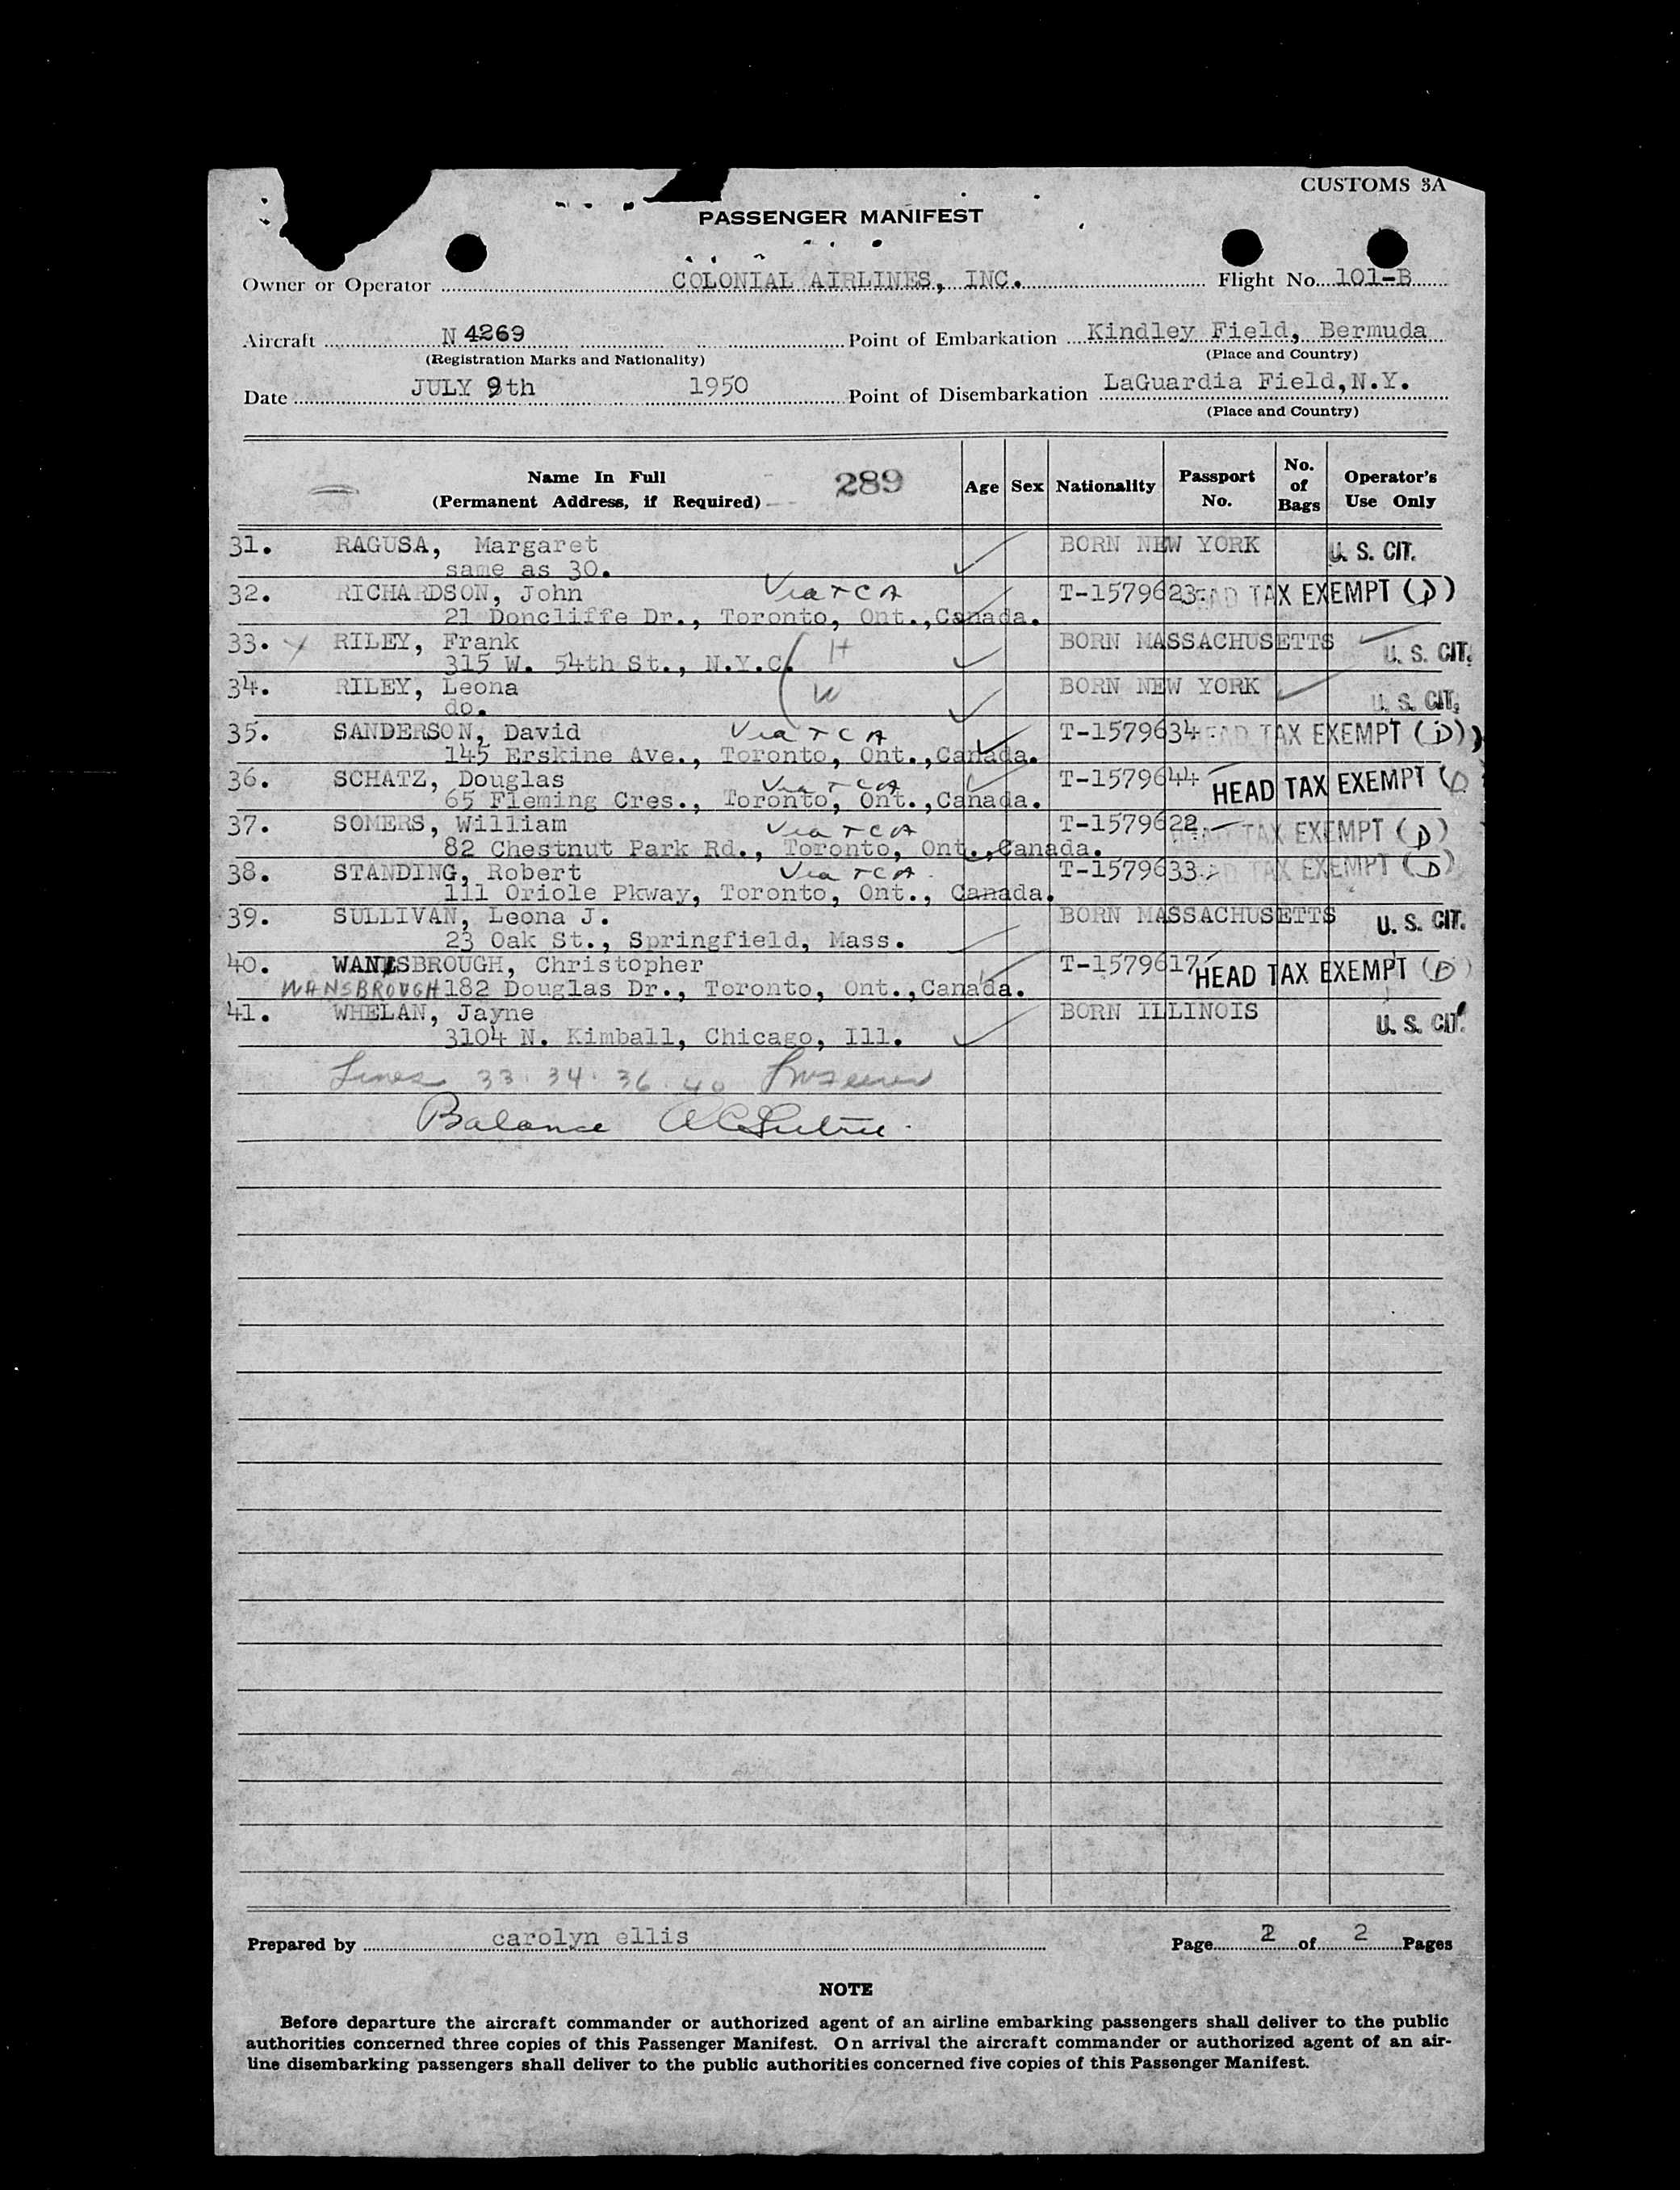 CUSTOMS 3A
PASSENGER MANIFEST
Owner or Operator COLONIAL AIRLINES, INC. Flight No. 101-B
Aircraft N 4269 Point of Embarkation Kindley Field, Bermuda
(Registration Marks and Nationality) (Place and Country)
Date JULY 9th 1950 Point of Disembarkation LaGuardia Field, N.Y.
(Place and Country)
Name In Full (Permanent Address, if Required) 289 Age Sex Nationality Passport No. No. of Bags Operator's Use Only
31. RAGUSA, Margaret BORN NEW YORK U. S. CIT.
same as 30.
32. RICHARDSON, John Via TCA T-1579623 HEAD TAX EXEMPT (D)
21 Doncliffe Dr., Toronto, Ont., Canada.
33. RILEY, Frank H BORN MASSACHUSETTS U. S. CIT.
315 W. 54th St., N.Y.C.
34. RILEY, Leona W BORN NEW YORK U. S. CIT.
do.
35. SANDERSON, David Via TCA T-1579634 HEAD TAX EXEMPT (D)
145 Erskine Ave., Toronto, Ont., Canada.
36. SCHATZ, Douglas Via TCA T-1579644 HEAD TAX EXEMPT (D)
65 Fleming Cres., Toronto, Ont., Canada.
37. SOMERS, William Via TCA T-1579622 HEAD TAX EXEMPT (D)
82 Chestnut Park Rd., Toronto, Ont., Canada.
38. STANDING, Robert Via TCA T-1579633 HEAD TAX EXEMPT (D)
111 Oriole Pkway, Toronto, Ont., Canada.
39. SULLIVAN, Leona J. BORN MASSACHUSETTS U. S. CIT.
23 Oak St., Springfield, Mass.
40. WANSBROUGH, Christopher T-1579617 HEAD TAX EXEMPT (D)
WANSBROUGH 182 Douglas Dr., Toronto, Ont., Canada.
41. WHELAN, Jayne BORN ILLINOIS U. S. CIT.
3104 N. Kimball, Chicago, Ill.
Lines 33. 34. 36. 40
Balance
Prepared by carolyn ellis Page 2 of 2 Pages
NOTE
Before departure the aircraft commander or authorized agent of an airline embarking passengers shall deliver to the public
authorities concerned three copies of this Passenger Manifest. On arrival the aircraft commander or authorized agent of an air-
line disembarking passengers shall deliver to the public authorities concerned five copies of this Passenger Manifest.